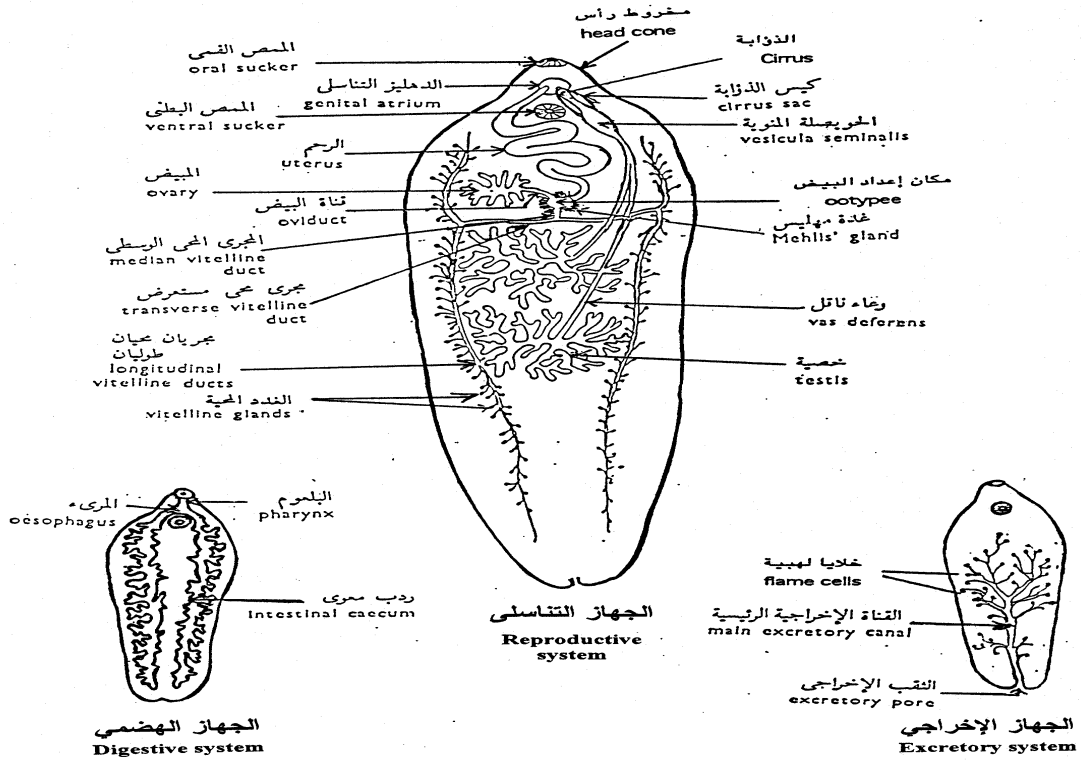 مخروط رأس
head cone
الممص الفمى
oral sucker
الدهليز التناسلى
genital atrium
الممص البطنى
ventral sucker
الرحم
uterus
المبيض
ovary
قناة البيض
oviduct
المجرى المحى الوسطى
median vitelline
duct
مجرى محى مستعرض
transverse vitelline
duct
مجريان محيان
طوليان
longitudinal
vitelline ducts
الغدد المحية
vitelline glands
الذؤابة
Cirrus
كيس الذؤابة
cirrus sac
الحويصلة المنوية
vesicula seminalis
مكان إعداد البيض
ootypee
غدة مهليس
Mehlis' gland
وعاء ناقل
vas deferens
خصية
testis
الجهاز التناسلى
Reproductive
system
المرىء
oesophagus
البلعوم
pharynx
ردب معوى
intestinal caecum
الجهاز الهضمي
Digestive system
خلايا لهبية
flame cells
القناة الإخراجية الرئيسية
main excretory canal
الثقب الإخراجى
excretory pore
الجهاز الإخراجي
Excretory system